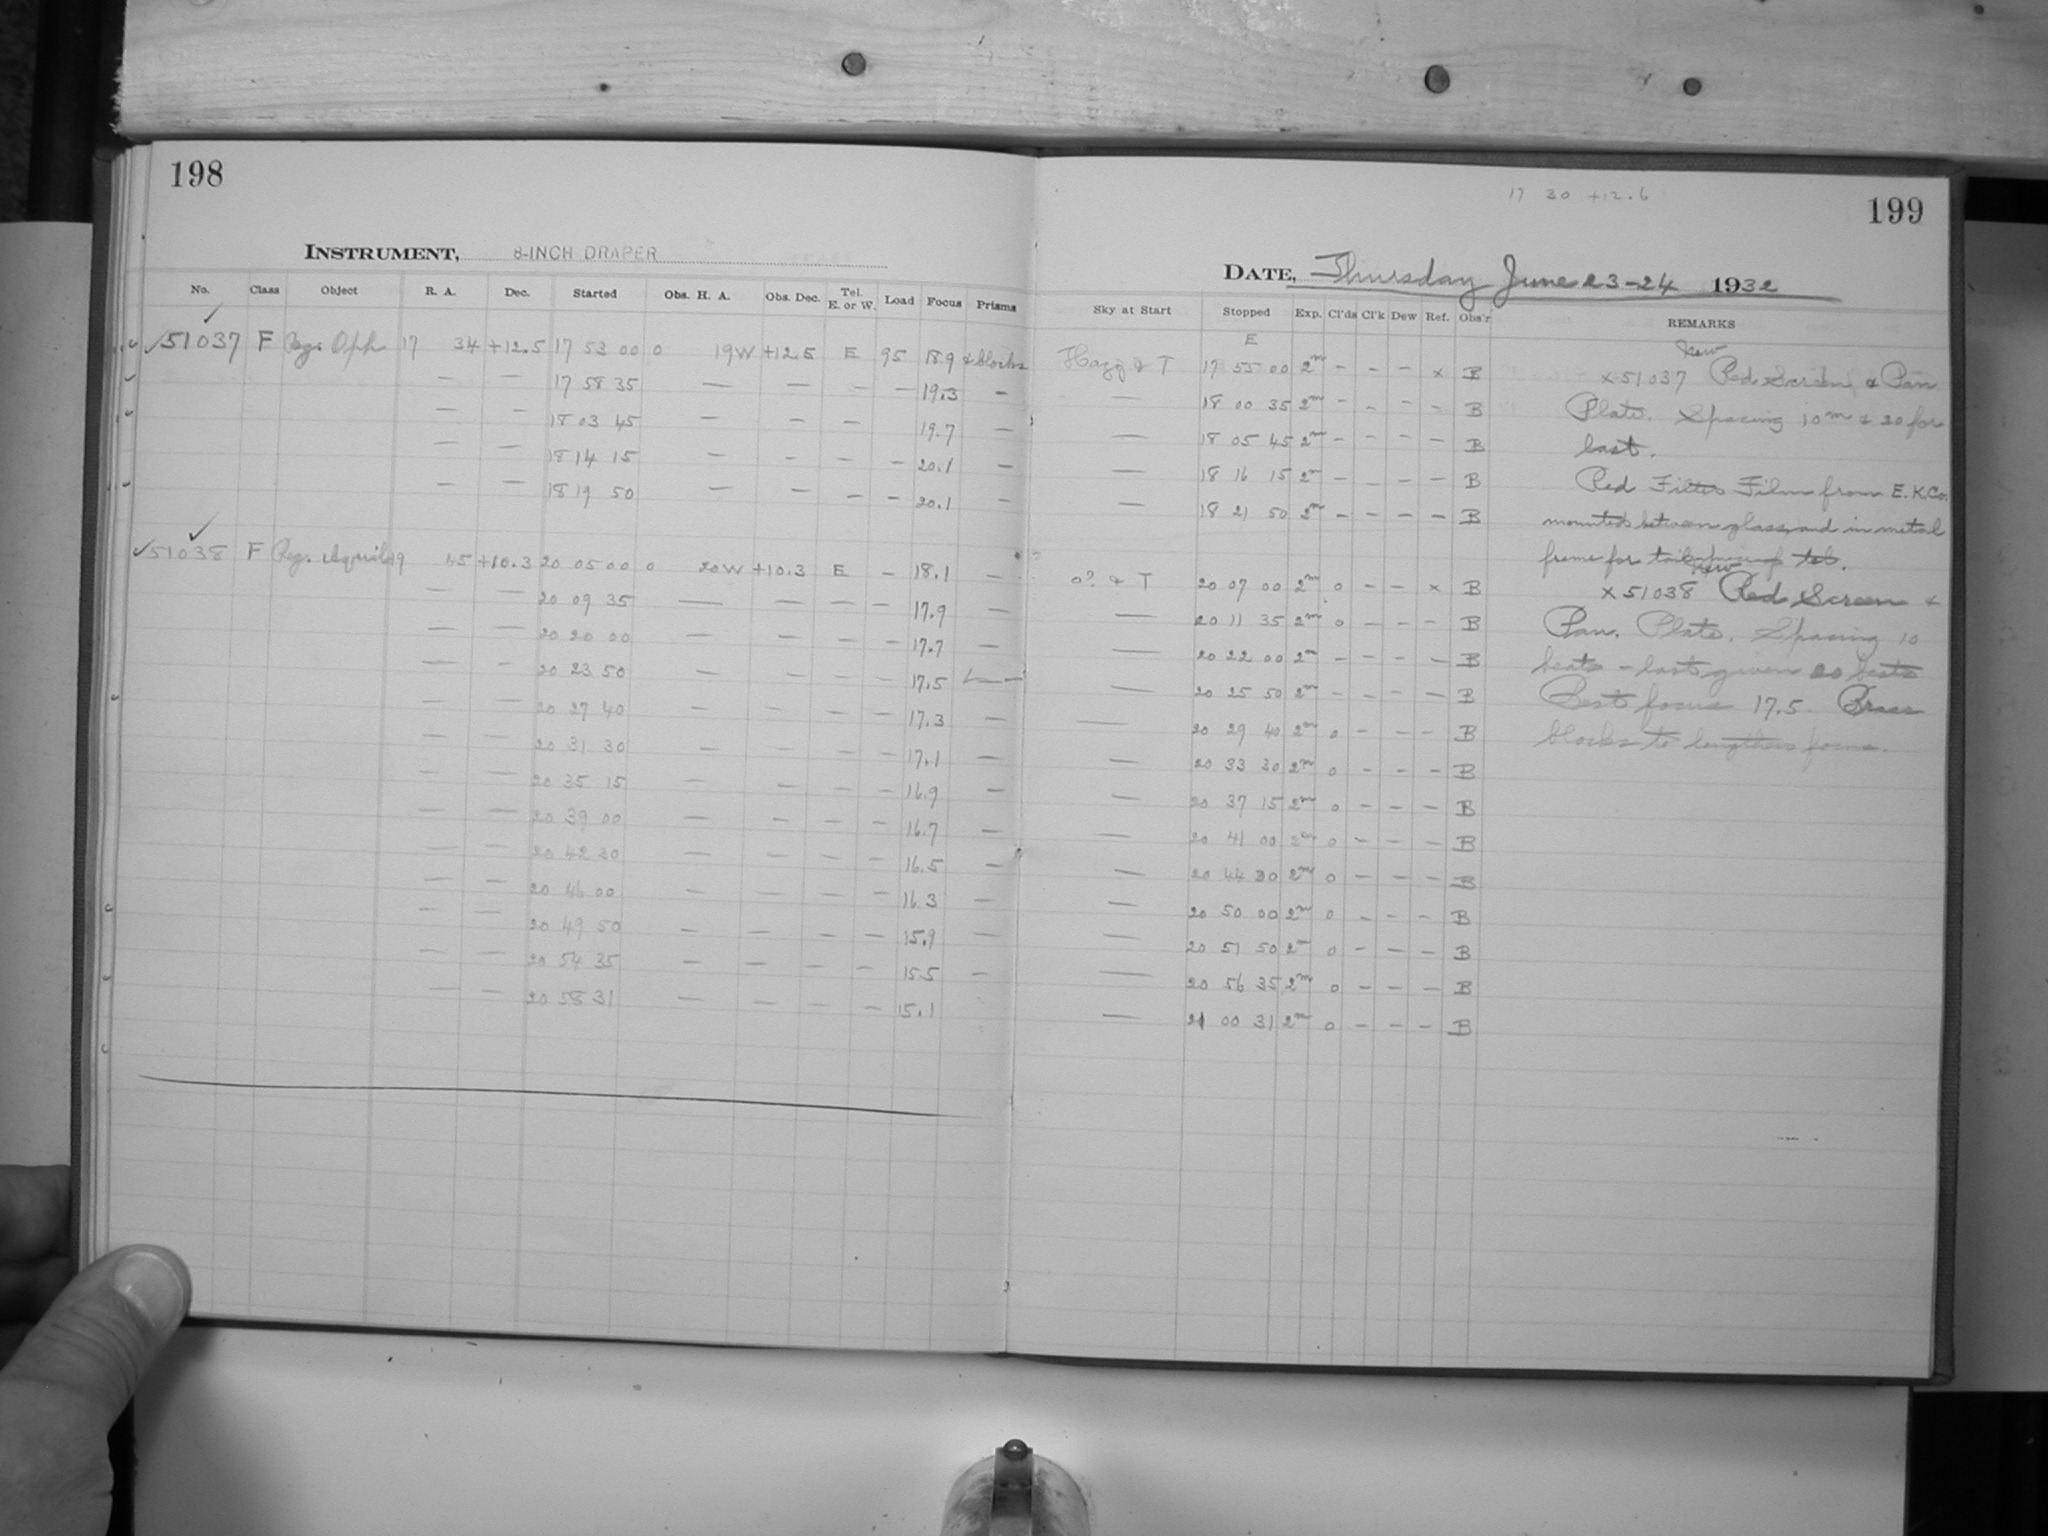 198
INSTRUMENT, 8-INCH DRAPER
No. Class Object R. A. Dec. Started Obs. H. A. Obs. Dec. Tel. E. or W. Load Focus Prisms
✓51037 F Reg. Oph 17 34 +12.5 17 53 00 0 19W +12.5 E 95 18.9 & blocks
— — 17 58 35 — — — — 19.3 —
— — 18 03 45 — — — 19.7 —
— — 18 14 15 — — — — 20.1 —
— — 18 19 50 — — — — 20.1 —
✓51038 F Reg. Aquila 19 45 +10.3 20 05 00 0 20W +10.3 E — 18.1 —
— — 20 09 35 — — — — 17.9 —
— — 20 20 00 — — — — 17.7 —
— — 20 23 50 — — — — 17.5 —
— — 20 27 40 — — — — 17.3 —
— — 20 31 30 — — — — 17.1 —
— — 20 35 15 — — — — 16.9 —
— — 20 39 00 — — — — 16.7 —
— — 20 42 30 — — — — 16.5 —
— — 20 46 00 — — — — 16.3 —
— — 20 49 50 — — — — 15.9 —
— — 20 54 35 — — — — 15.5 —
— — 20 58 31 — — — — 15.1
17 30 +12.6
199
DATE, Thursday June 23-24 1932
Sky at Start Stopped Exp. Cl'ds Cl'k Dew Ref. Obs'r REMARKS
E
Hazy & T 17 55 00 2m - - - x B
— 18 00 35 2m - - - - B
— 18 05 45 2m - - - - B
— 18 16 15 2m - - - - B
— 18 21 50 2m - - - - B
0? & T 20 07 00 2m 0 - - x B
— 20 11 35 2m 0 - - - B
— 20 22 00 2m - - - - B
— 20 25 50 2m - - - - B
— 20 29 40 2m 0 - - - B
— 20 33 30 2m 0 - - - B
— 20 37 15 2m 0 - - - B
— 20 41 00 2m 0 - - - B
— 20 44 30 2m 0 - - - B
— 20 50 00 2m 0 - - - B
— 20 51 50 2m 0 - - - B
— 20 56 35 2m 0 - - - B
— 21 00 31 2m 0 - - - B
New
x 51037 Red Screen & Pan
Plate. Spacing 10m & 20 for
last.
Red Filter Film from E.K.Co.
mounted between glass, and in metal
frame for
New
x 51038 Red Screen &
Pan. Plate. Spacing 10
beats - last given 20 beats
Best focus 17.5 Brass
blocks to lengthen focus.